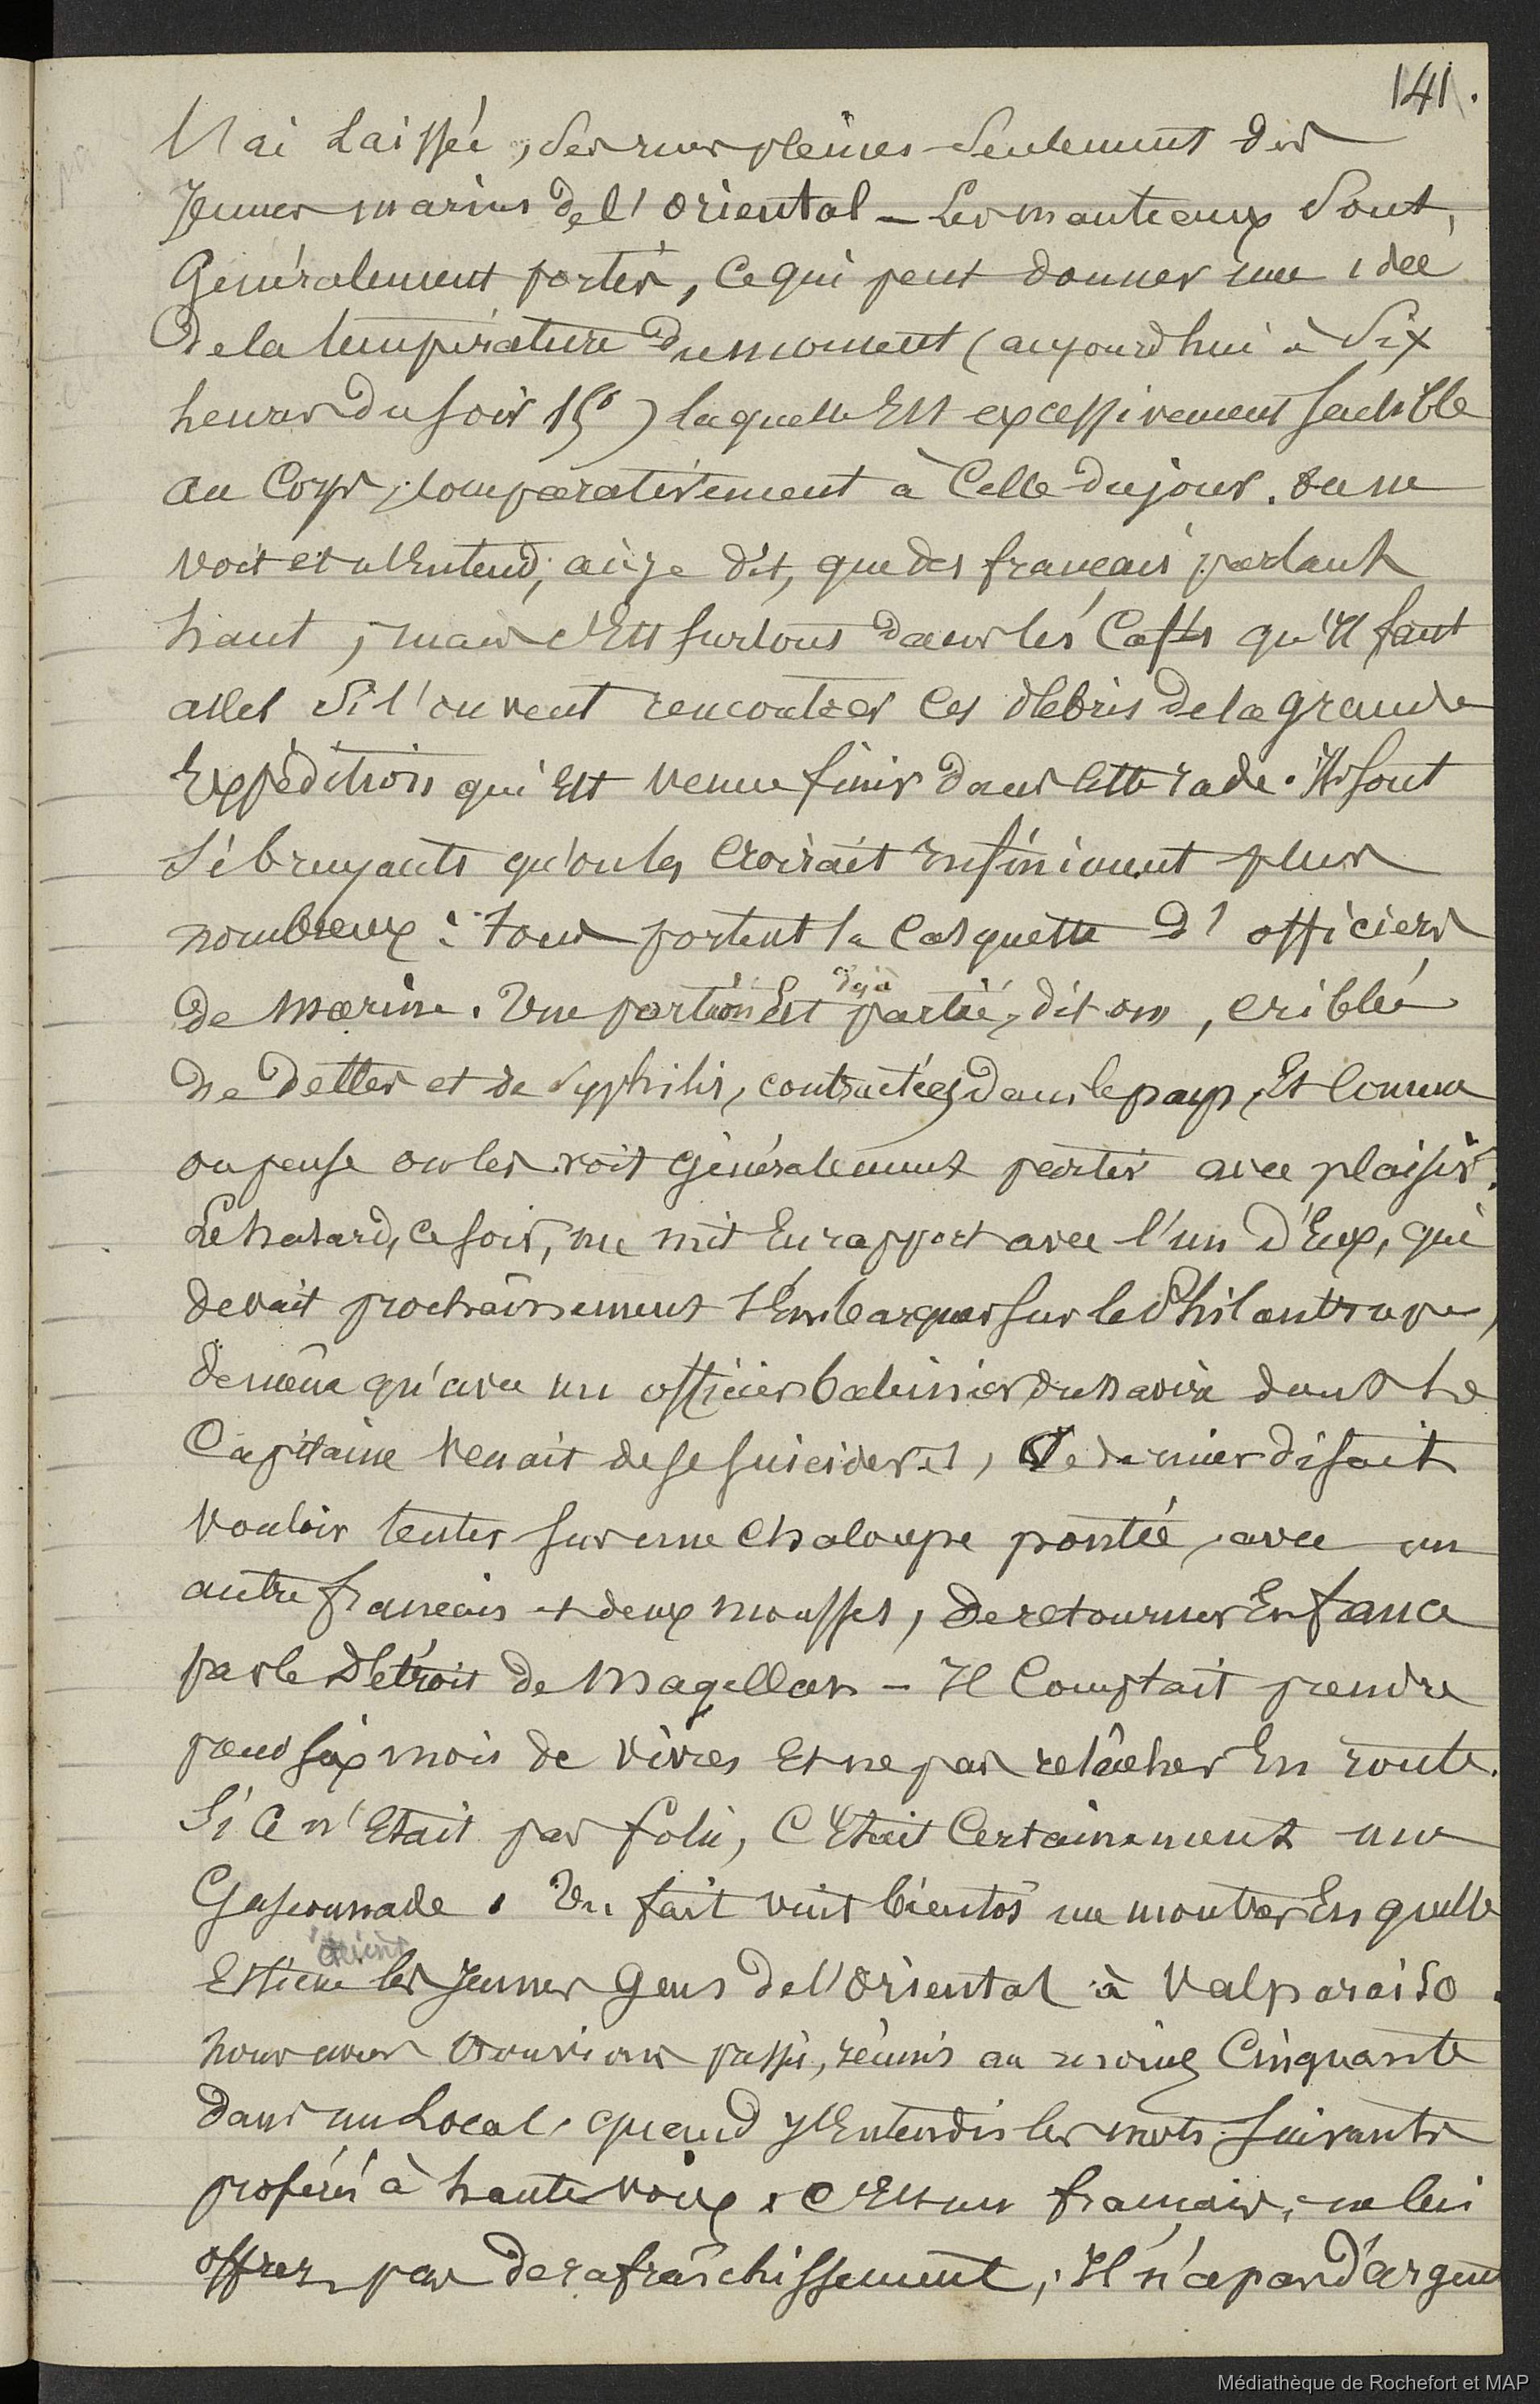 141.
l'ai Laissée, ses rues pleines seulement des
Jeunes marins de l'Oriental – Les manteaux sont,
Généralement portés, ce qui peut donner une idée
de la température du moment (aujourd'hui à six
heures du soir 15°) laquelle Est excessivement sensible
au Corps, comparativement à Celle du jour. On ne
voit et n'Entend, ai-je dit, que des français parlant
haut, mais c'Est surtout dans les Cafés qu'il faut
aller si l'on veut rencontrer ces débris de la grande
Expédition qui Est venue finir dans cette rade. Ils sont
si bruyants qu'on les croirait Infiniment plus
nombreux : tous portent la Casquette d'officiers
de marine. Une portion Est déjà partie, dit on, criblée
de Dettes et de syphilis, contractées dans le pays, Et Comme
on pense on les voit généralement partir avec plaisir.
Le hasard, ce soir, me mit En rapport avec l'un d'Eux, qui
devait prochainement s'Embarquer sur le Philantrope,
de même qu'avec un officier baleinier du navire dont le
Capitaine venait de se suicider, Ce dernier disait
vouloir tenter sur une chaloupe pontée, avec un
autre français et deux mousses, de retourner En france
par le Détroit de Magellan – Il Comptait prendre
pour six mois de vivres Et ne pas relâcher En route.
Si Ce n'Etait pas folie, C'Etait Certainement une
Gasconnade. Un fait vint bientôt me montrer En quelle
Estime étaient les Jeunes Gens de l'Oriental à Valparaiso.
nous nous trouvions passé, réunis au moins Cinquante
dans un Local, quand j'Entendis les mots suivants
proférés à haute voix. C'Est un français, ne lui
offrez pas de rafraîchissement, Il n'a pas d'argent
Médiathèque de Rochefort et MAP